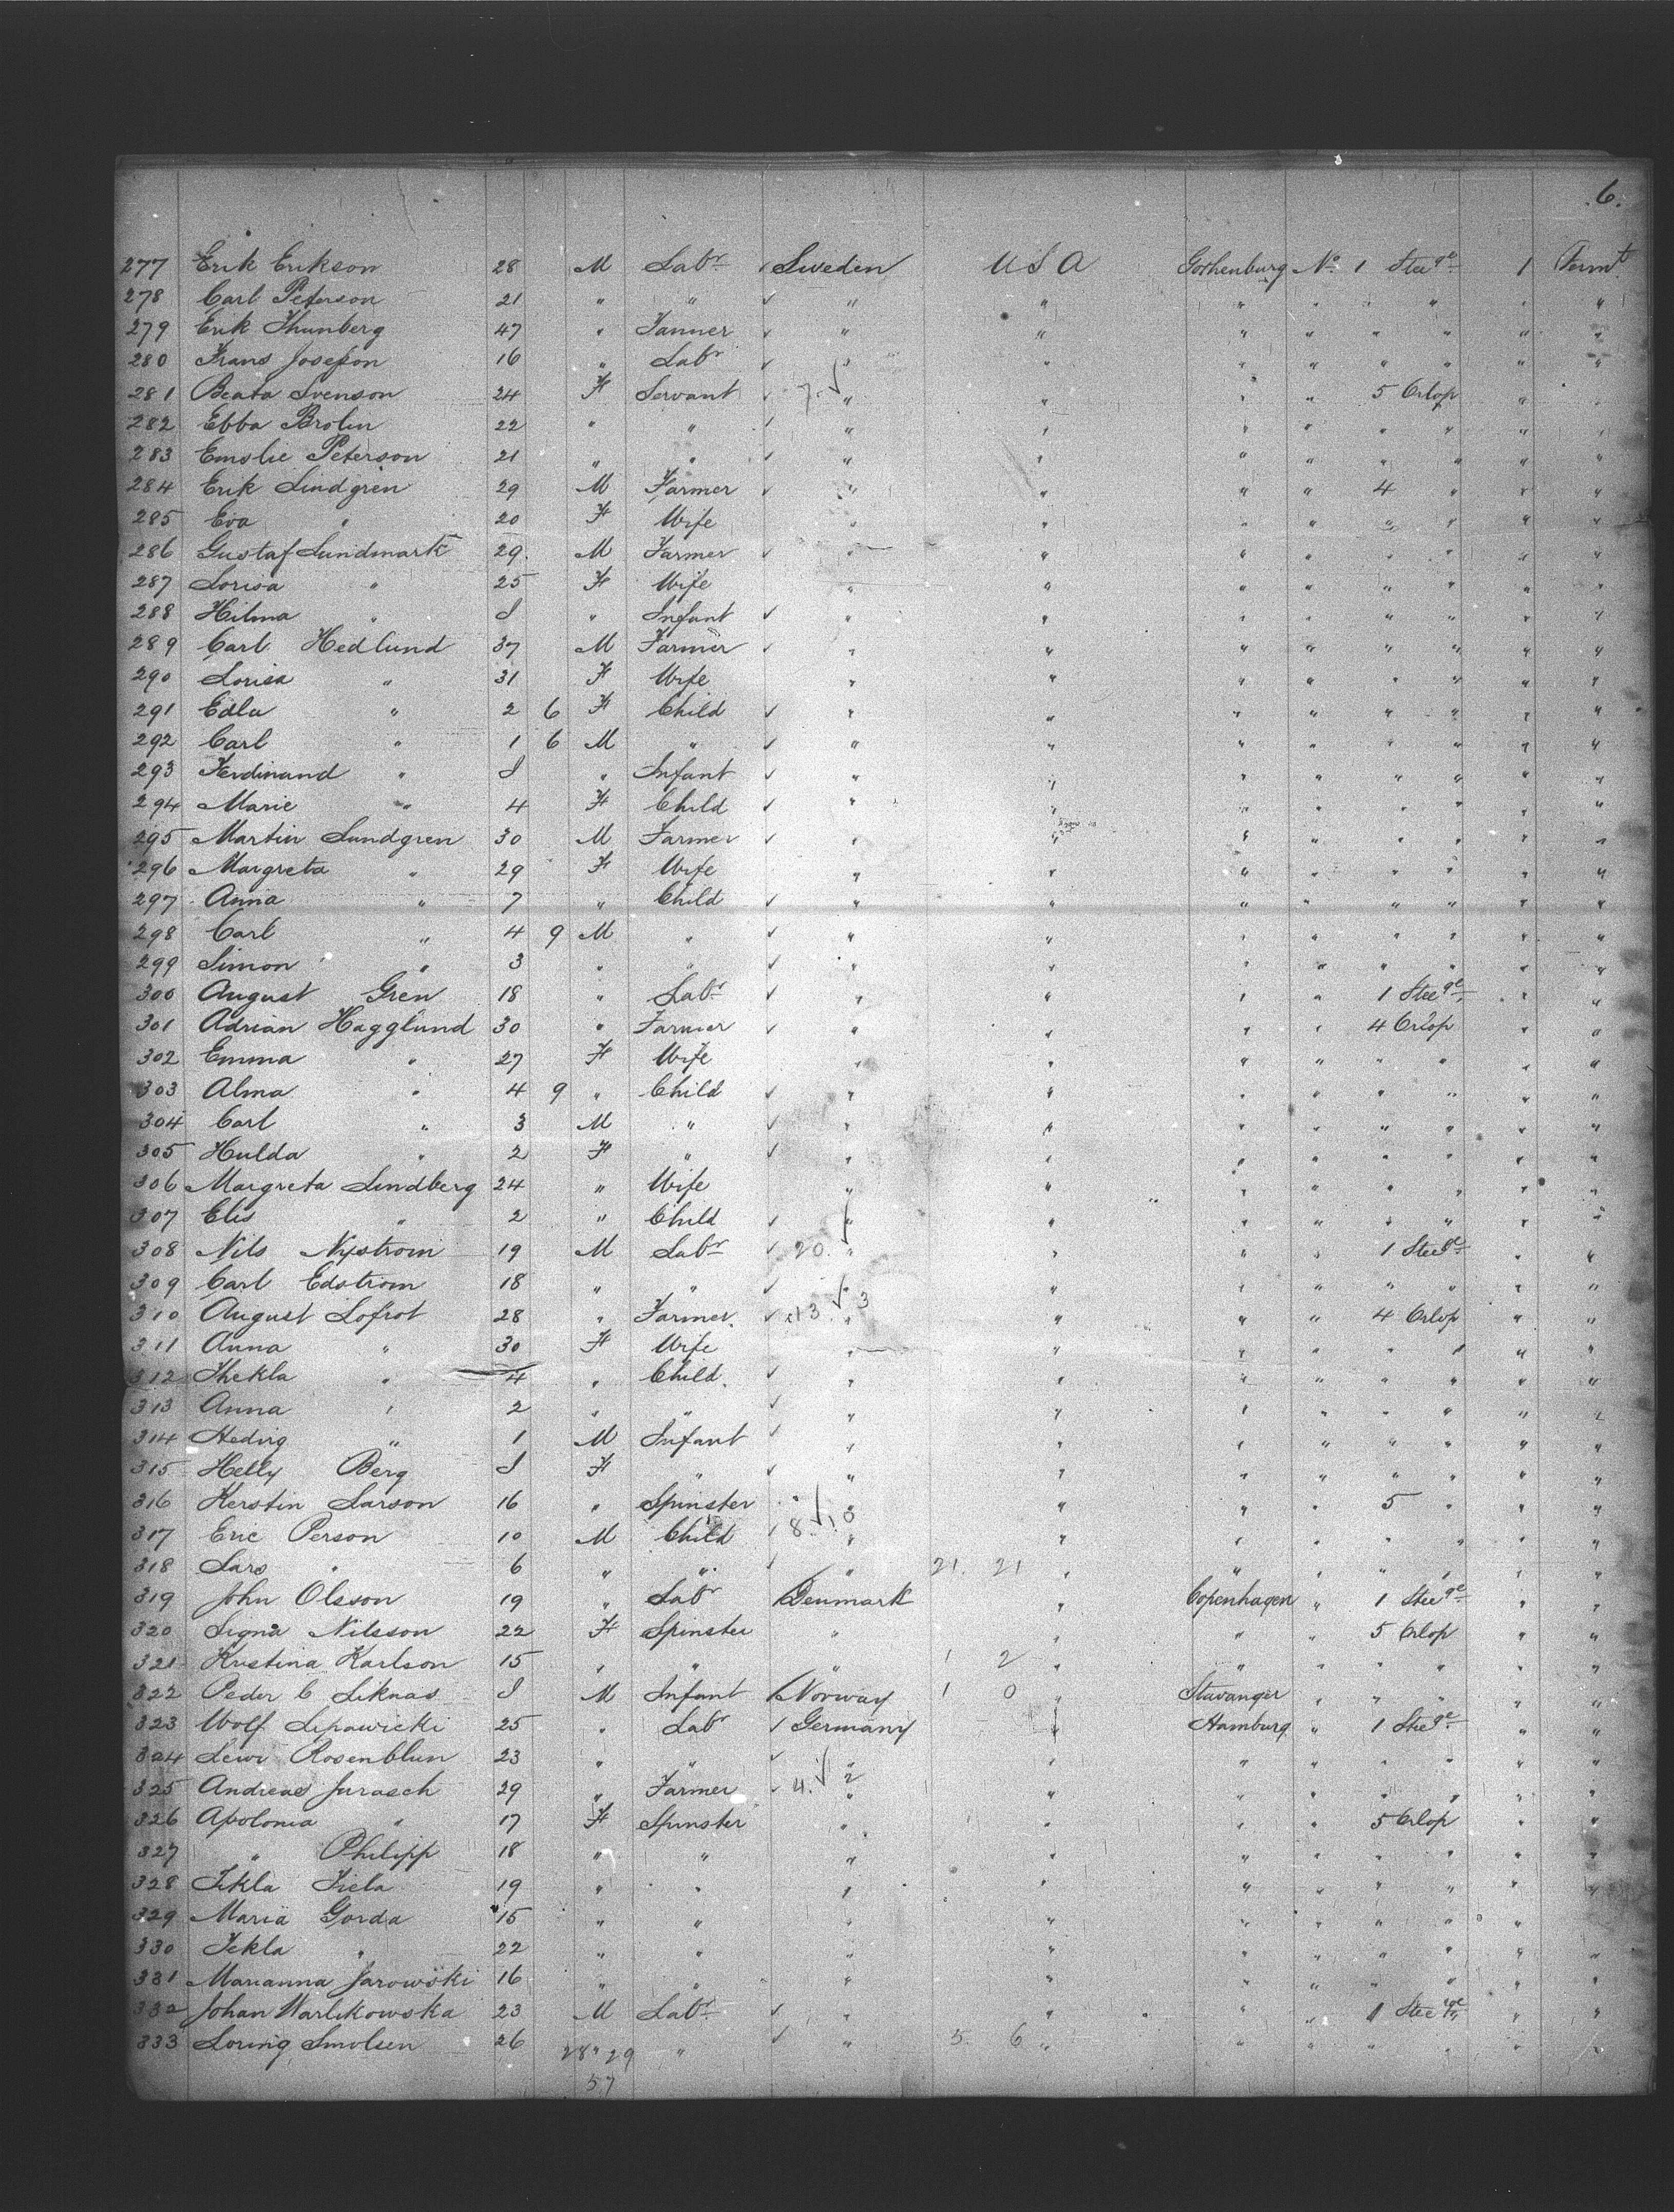 6.
277 Erik Erikson 28 M Labr Sweden U S A Gothenburg No 1 Steege 1 Permt
278 Carl Peterson 21 " " " " " " " " " "
279 Erik Thunberg 47 " Tanner " " " " " " " "
280 Frans Josefson 16 " Labr " " " " " " " "
281 Beata Svenson 24 F Servant 7 " " " " 5 Orlop " "
282 Ebba Brolin 22 " " " " " " " " " "
283 Emslie Peterson 21 " " " " " " " " " "
284 Erik Lindgren 29 M Farmer " " " " 4 " " "
285 Eva " 20 F Wife " " " " " " " "
286 Gustaf Lundmark 29. M Farmer " " " " " " " "
287 Lovisa " 25 F Wife " " " " " " " "
288 Hilma " I " Infant " " " " " " " "
289 Carl Hedlund 37 M Farmer " " " " " " " "
290 Lovisa " 31 F Wife " " " " " " " "
291 Edla " 2 6 F Child " " " " " " " "
292 Carl " 1 6 M " " " " " " " " "
293 Ferdinand " I " Infant " " " " " " " "
294 Marie " 4 F Child " " " " " " " "
295 Martin Lundgren 30 M Farmer " " " " " " " "
296 Margreta " 29 F Wife " " " " " " " "
297 Anna " 7 " Child " " " " " " " "
298 Carl " 4 9 M " " " " " " " " "
299 Simon " 3 " " " " " " " " " "
300 August Gren 18 " Labr " " " " 1 Steege " "
301 Adrian Hagglund 30 " Farmer " " " " 4 Orlop " "
302 Emma " 27 F Wife " " " " " " " "
303 Alma " 4 9 " Child " " " " " " " "
304 Carl " 3 M " " " " " " " " "
305 Hulda " 2 F " " " " " " " " "
306 Margreta Lindberg 24 " Wife " " " " " " " "
307 Elis " 2 " Child " " " " " " " "
308 Nils Nystrom 19 M Labr 20. " " " " 1 Steege " "
309 Carl Edstrom 18 " " " " " " " " " "
310 August Lofrot 28 " Farmer. 13 3 " " " " 4 Orlop " "
311 Anna " 30 F Wife " " " " " " " "
312 Thekla " 4 " Child. " " " " " " " "
313 Anna " 2 " " " " " " " " " "
314 Hedvig " 1 M Infant " " " " " " " "
315 Helly Berg I F " " " " " " " " "
316 Kerstin Larson 16 " Spinster " " " " 5 " " "
317 Eric Person 10 M Child 8 10 " " " " " " " "
318 Lars " 6 " " " 21. 21 " " " " " " "
319 John Olsson 19 " Labr Denmark " Copenhagen " 1 Steege " "
320 Signa Nilsson 22 F Spinster " " " " 5 Orlop " "
321 Kristina Karlson 15 " " " 1 2 " " " " " " "
322 Peder C Liknas I M Infant Norway 1 0 " Stavanger " " " " "
323 Wolf Lipawicki 25 " Labr Germany " Hamburg " 1 Steege " "
324 Lewi Rosenblun 23 " " " " " " " " " "
325 Andreas Jurasch 29 " Farmer 4. 2 " " " " " " " "
326 Apolonia " 17 F Spinster " " " " 5 Orlop " "
327 " Philipp 18 " " " " " " " " " "
328 Tekla 19 " " " " " " " " " "
329 Maria Gorda 15 " " " " " " " " "
330 Tekla " 22 " " " " " " " " " "
331 Marianna Jarowski 16 " " " " " " " " " "
332 Johan Warlikowska 23 M Labr " " " " 1 Steege " "
333 Loring Smolsen 26 " " " 5 6 " " " " " " "
28 29
57